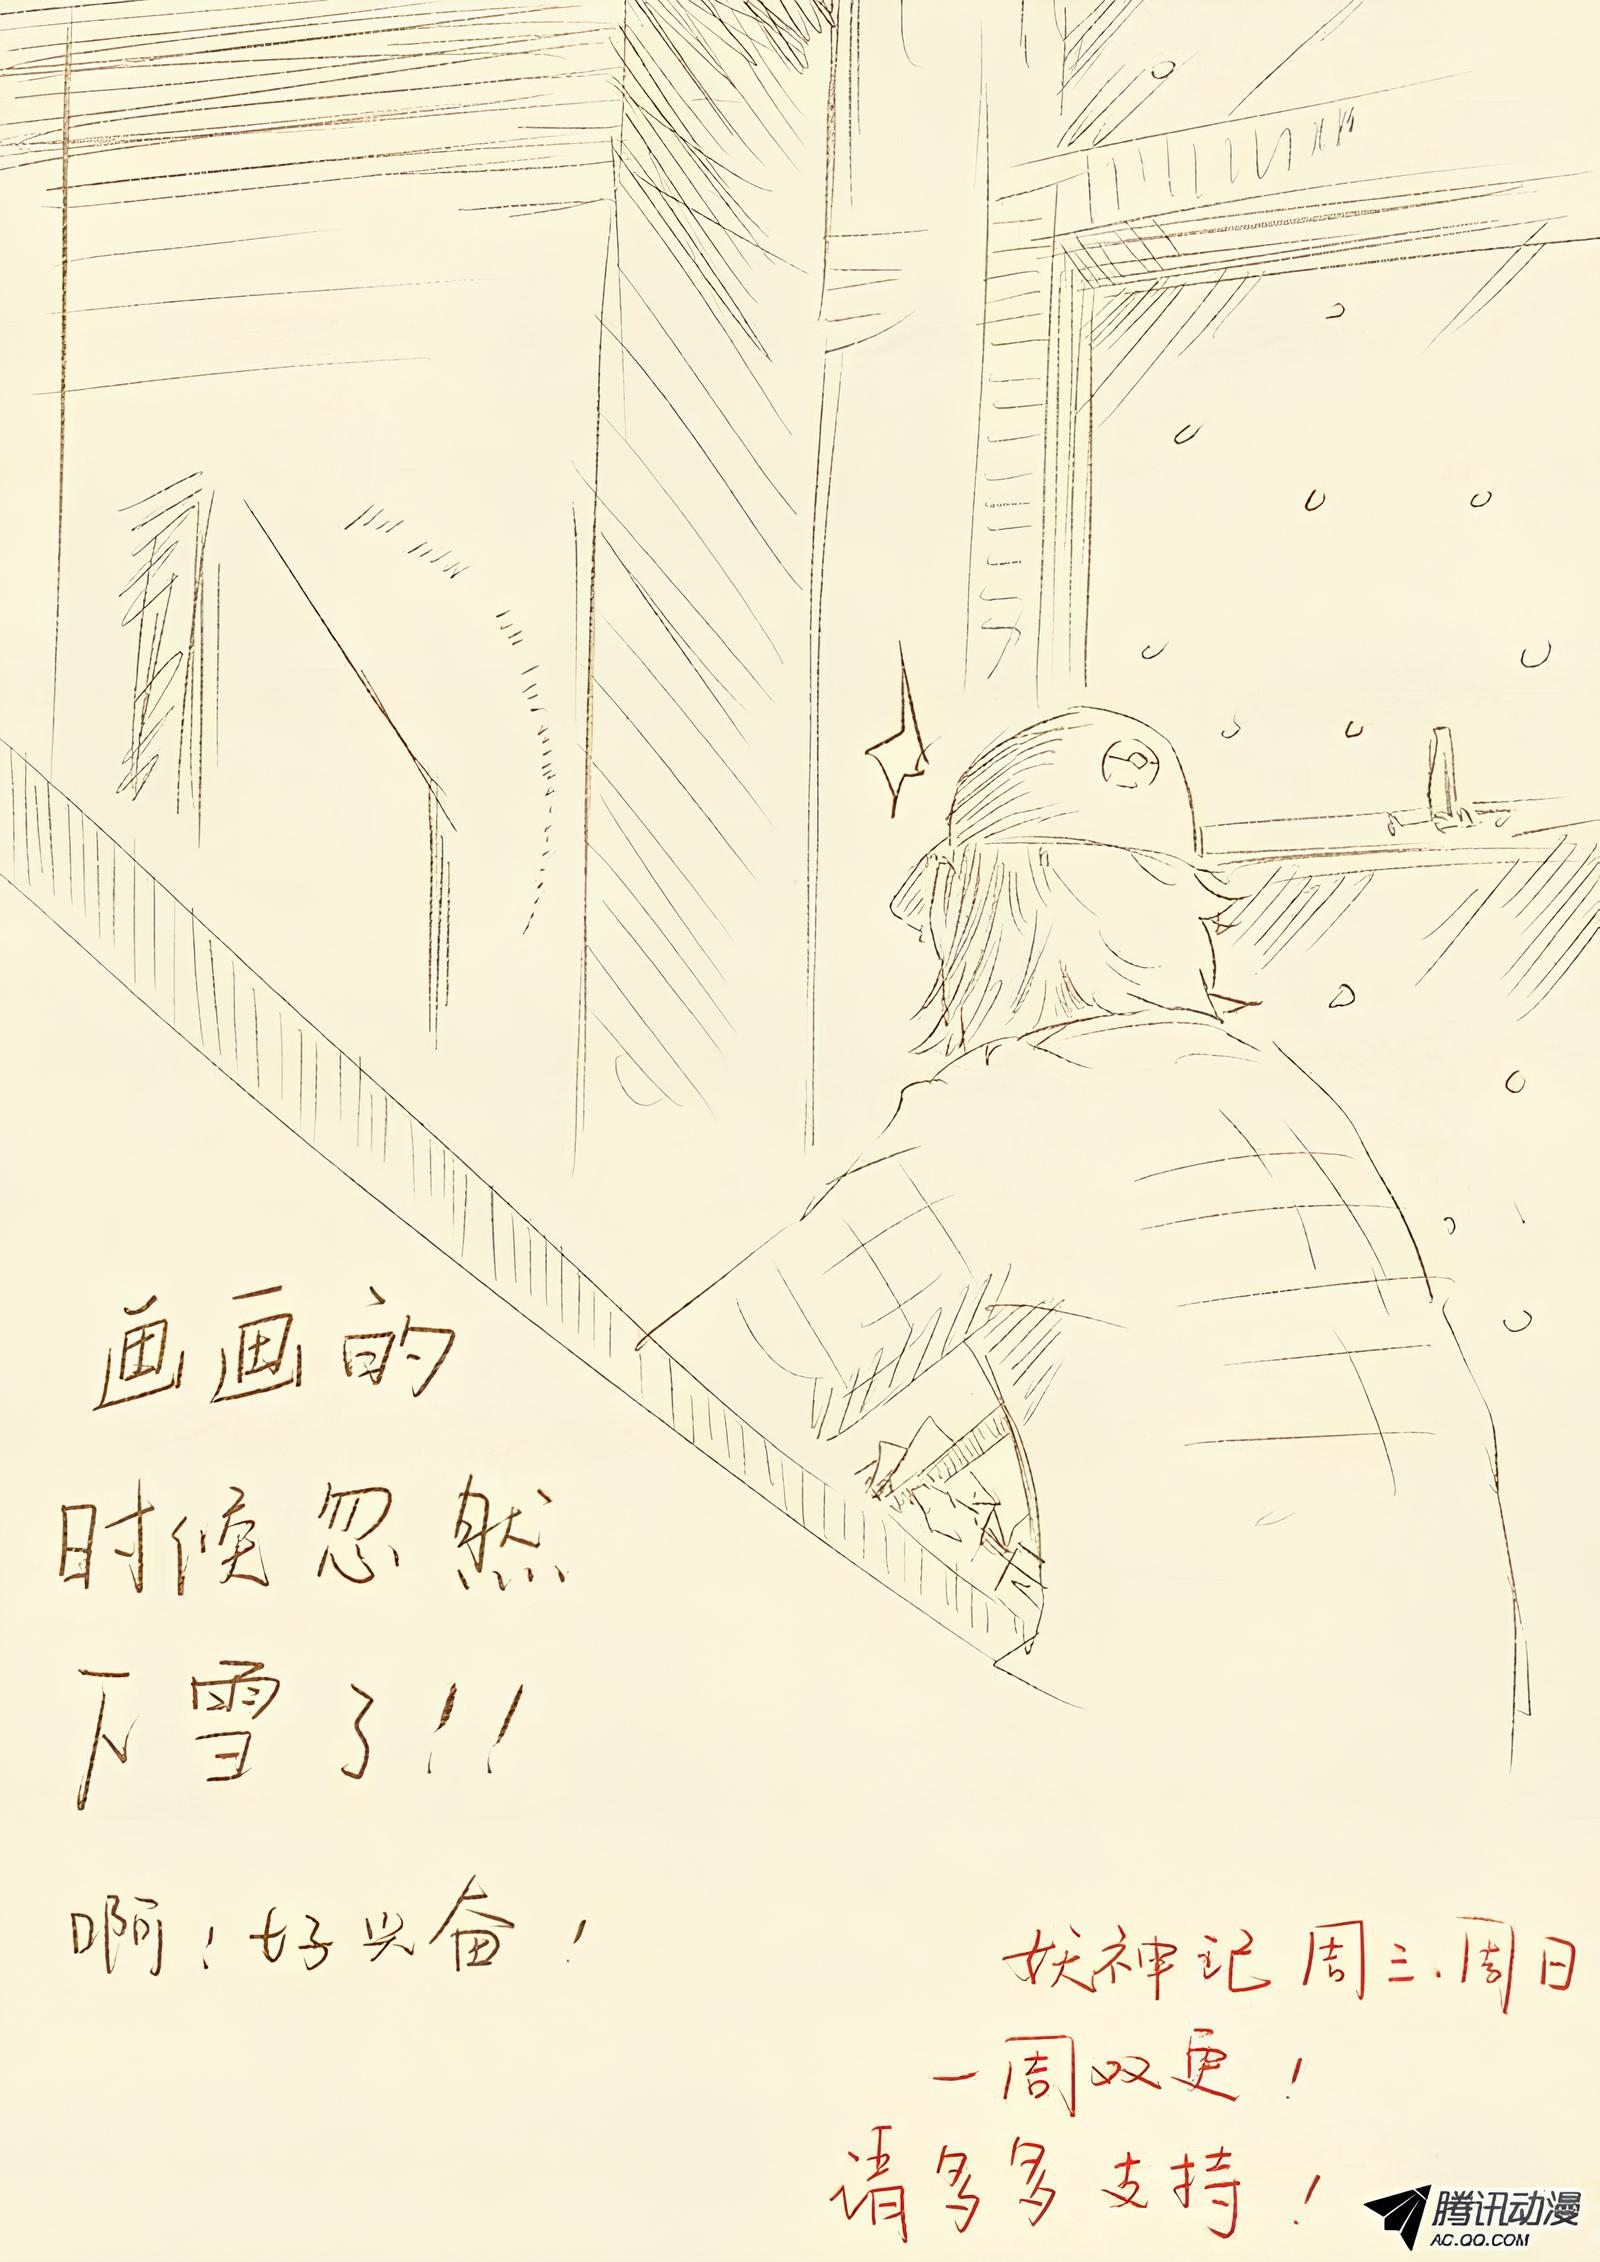 画画的
时候忽然
下雪了!!
啊!好兴奋!
妖神记 周三.周日
一周双更!
请多多支持!
腾讯动漫
AC.QQ.COM